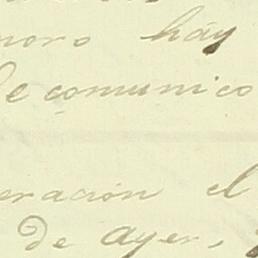 noro háy
le comunico
eración el
de ayer,